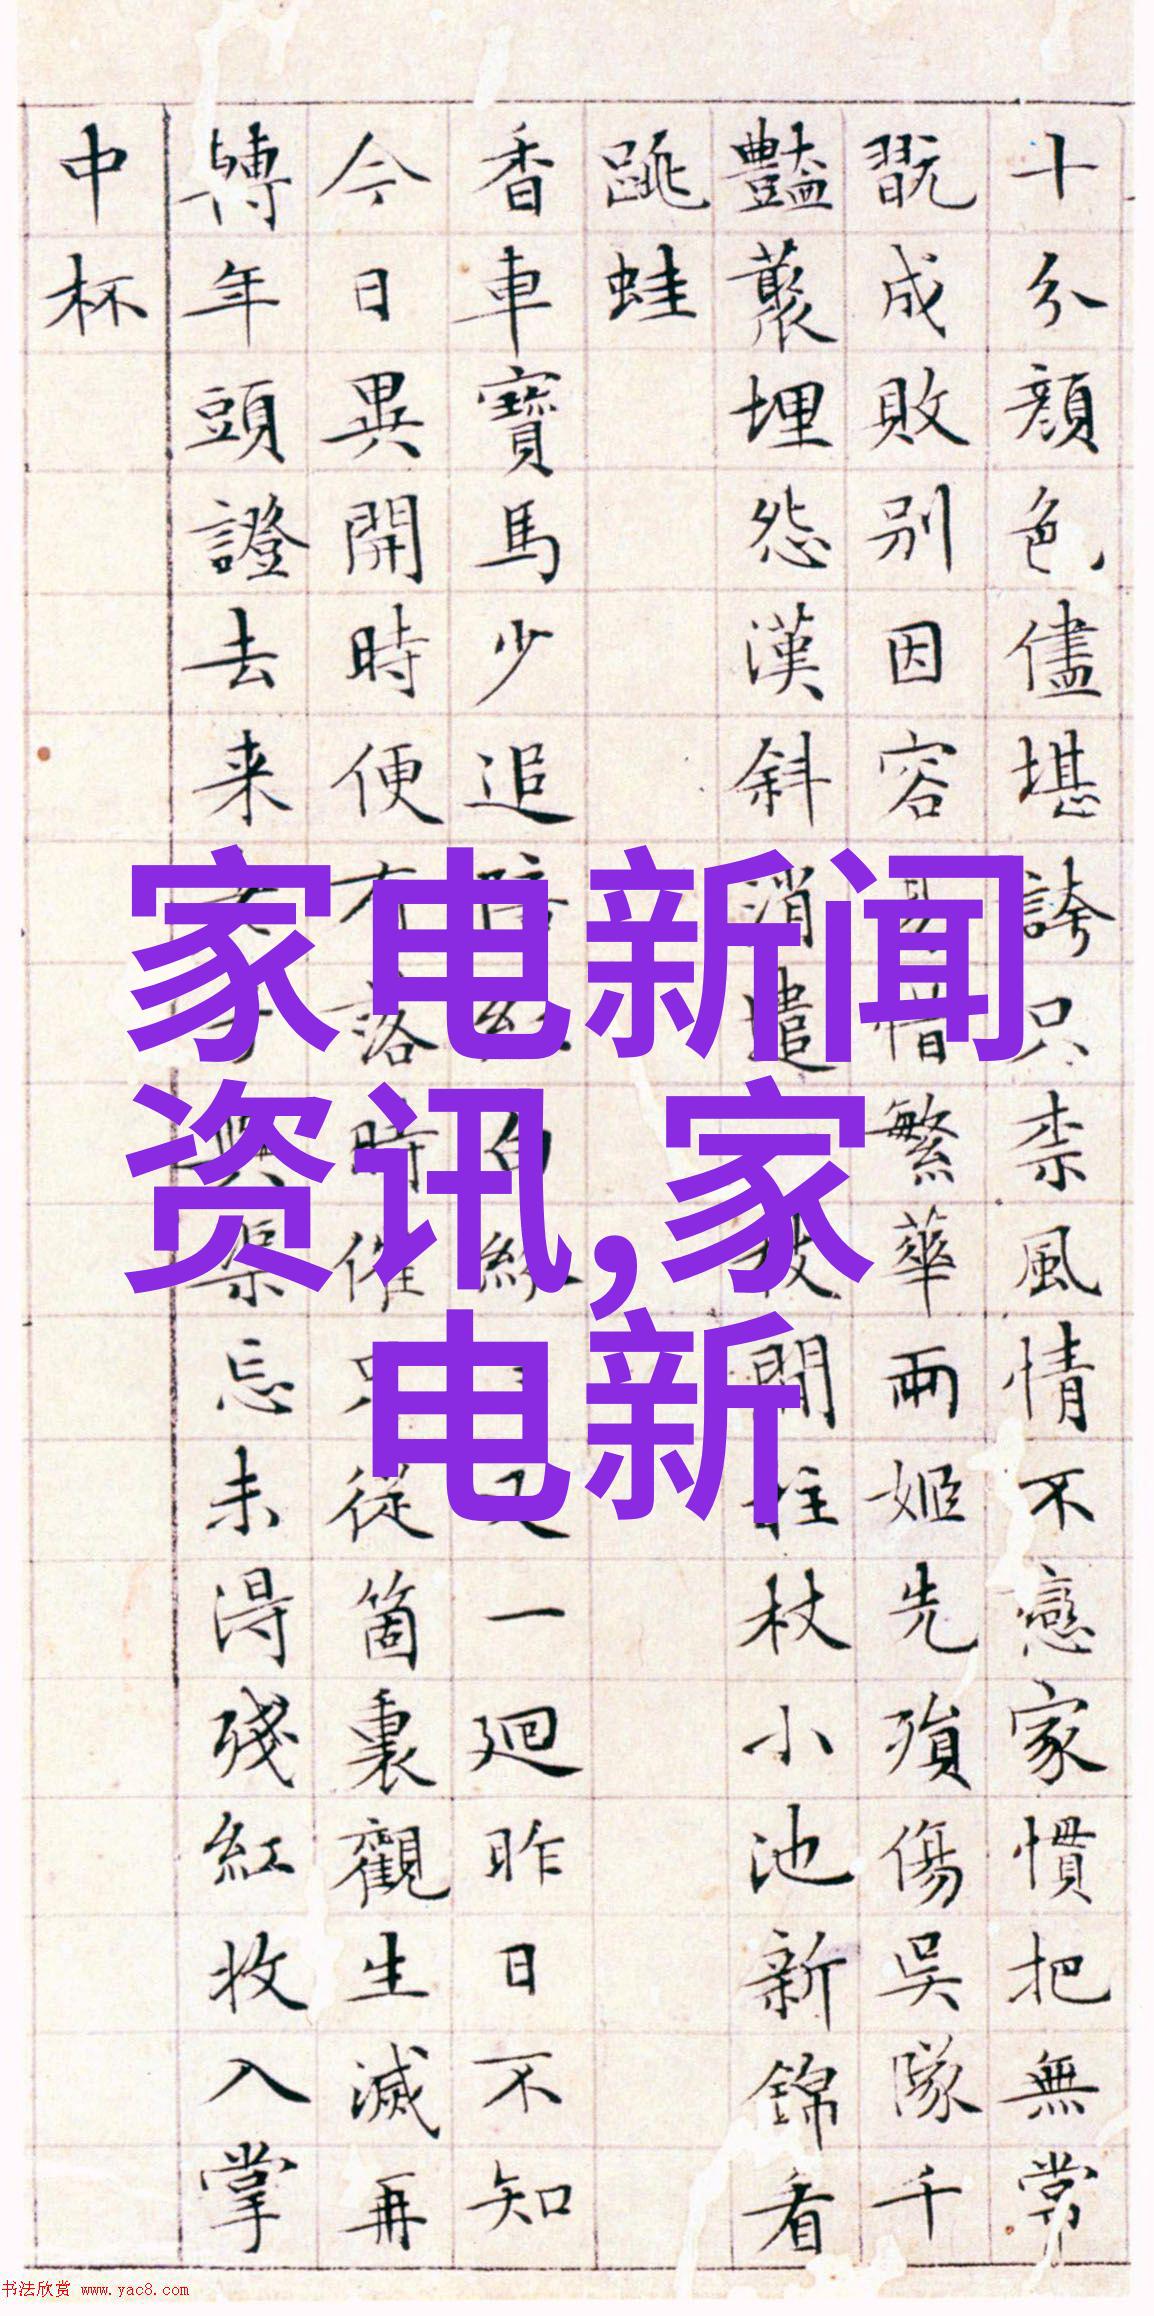 十分顏色儘堪誇只柰風情不戀家慣把無常
翫成敗別因容易惜繁華兩姬先殞傷吳隊千
豔叢埋怨漢斜消遣一枝閒拄杖小池新錦看
跳蛙
香車寶馬少追陪紅白紛紛又一廻昨日不知
今日異開時便有落時催只從箇裏觀生滅再
轉年頭證去來老子與渠忘未得殘紅收入掌
中杯
家电新闻
资讯,家
电新
书法欣赏 www.yac8.com